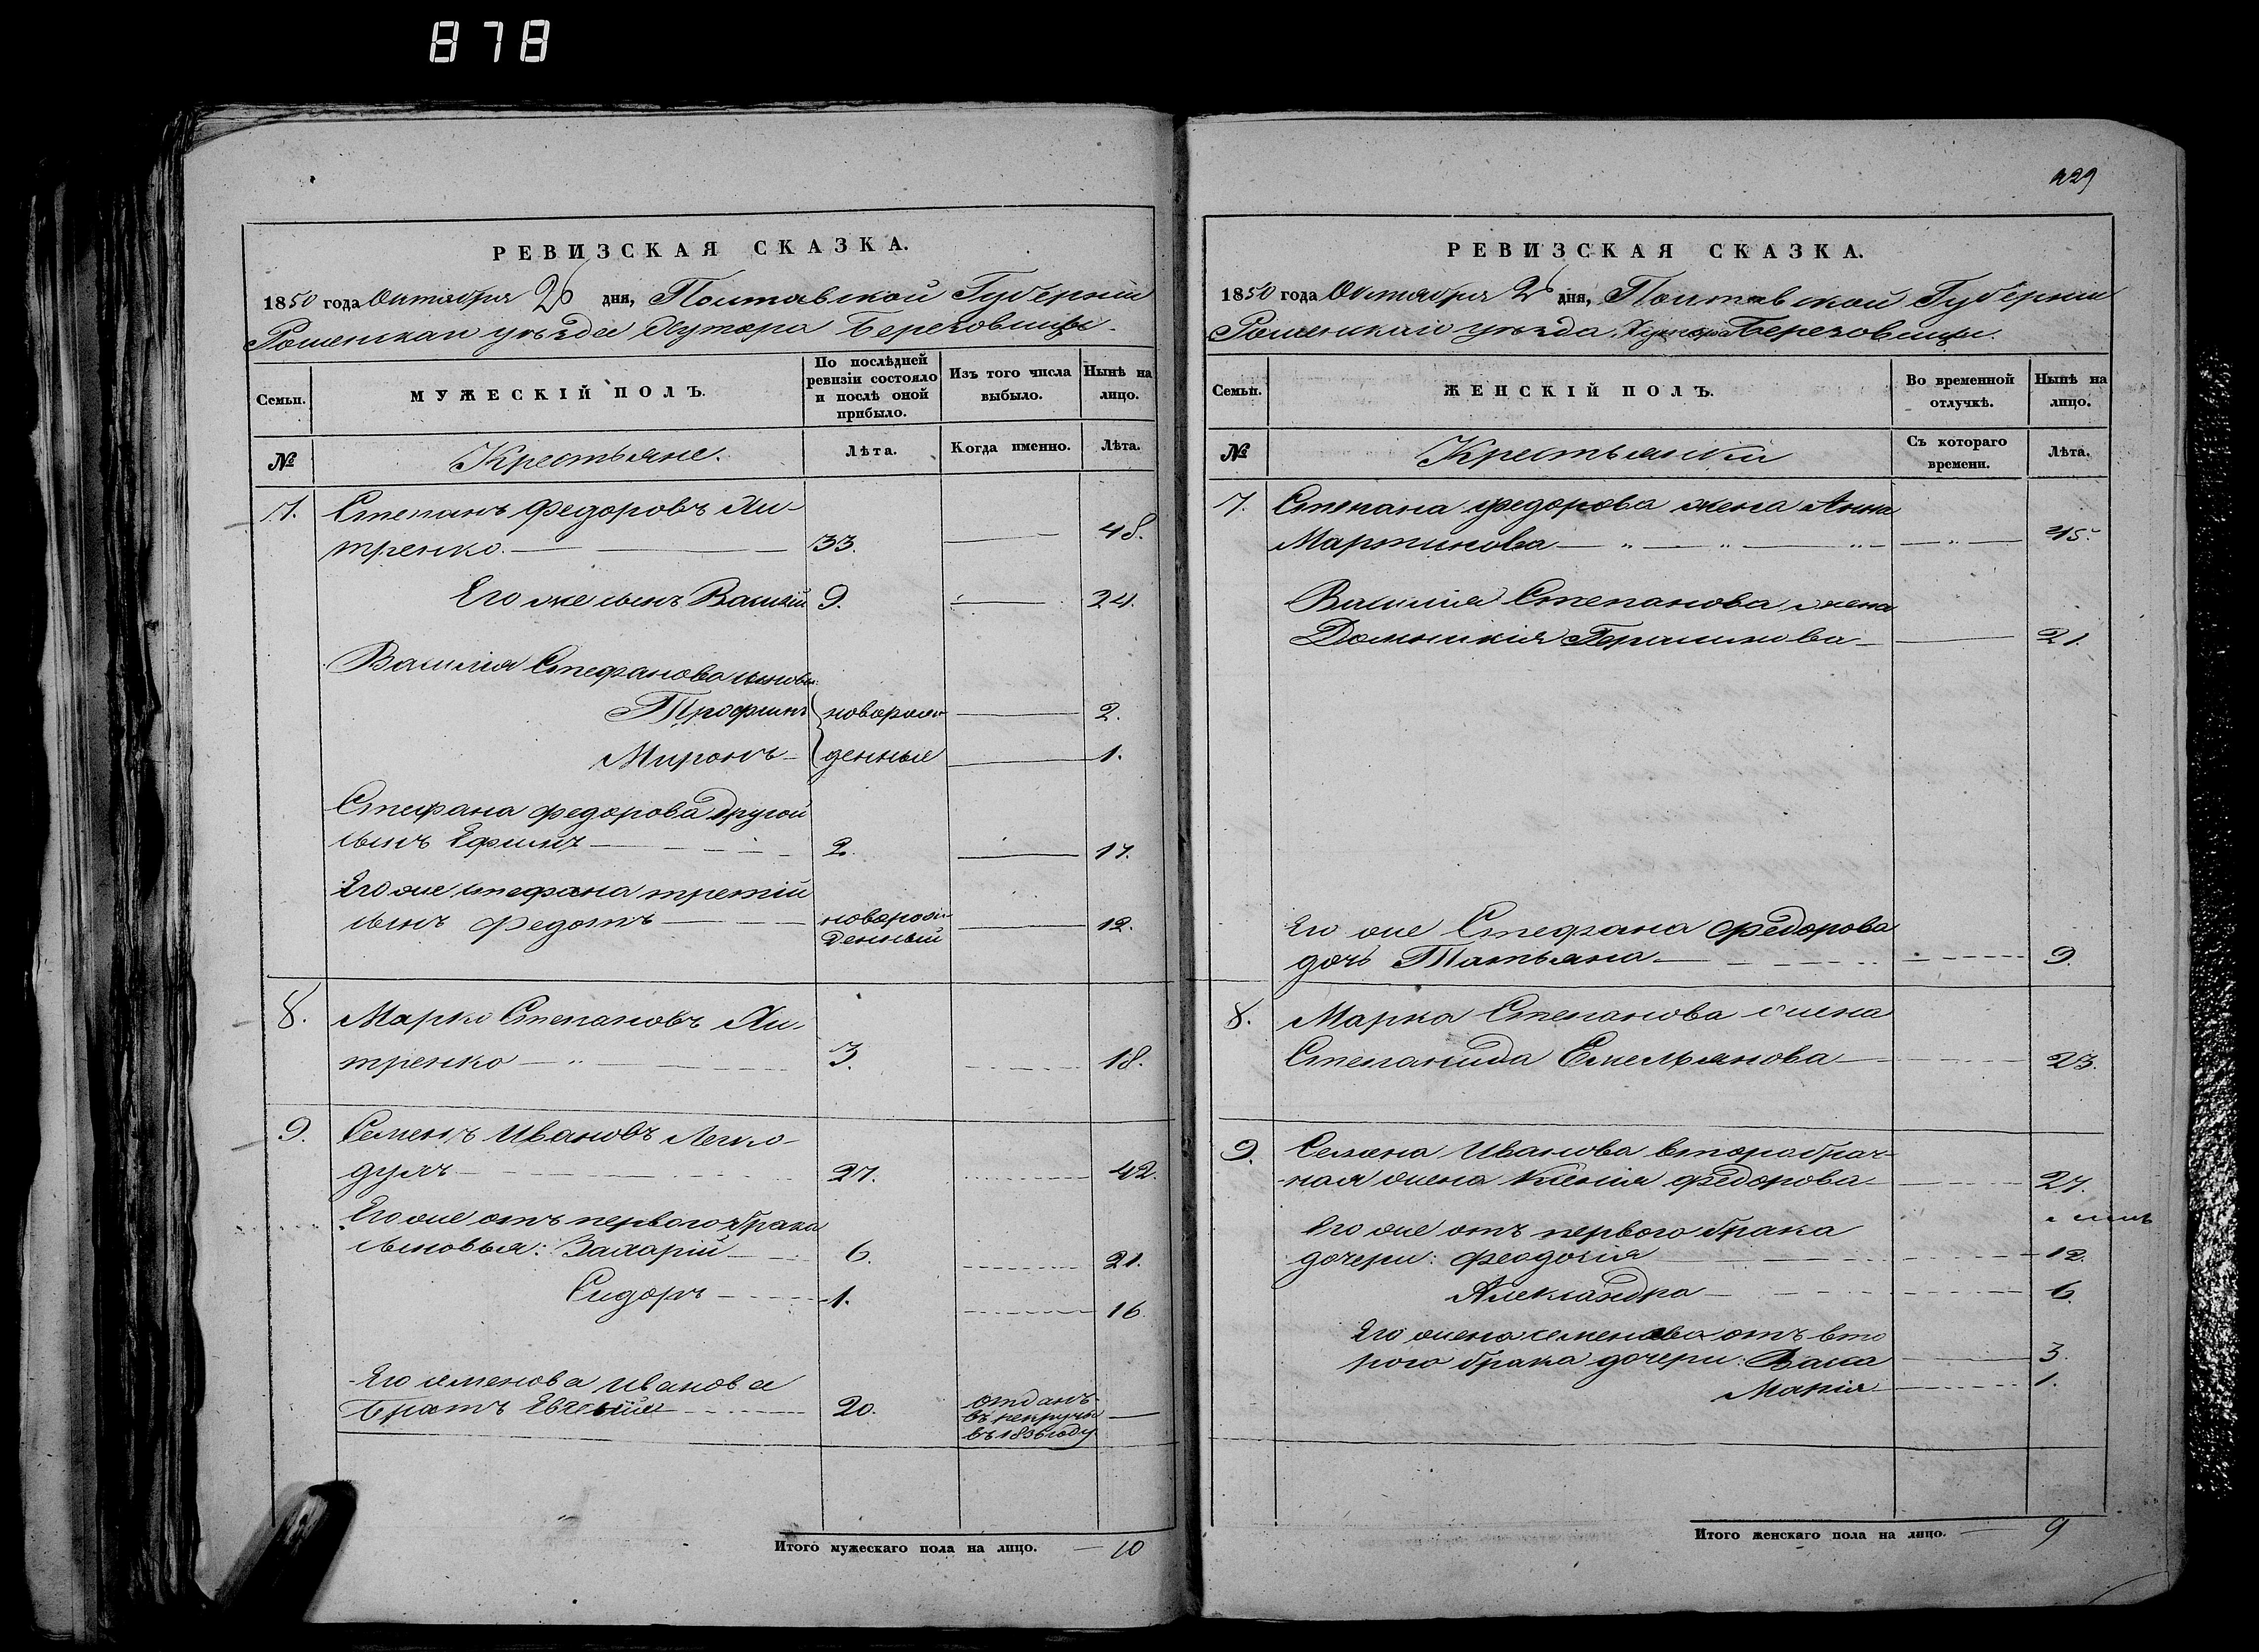 878
РЕВИЗСКАЯ СКАЗКА.
1850 года Октября 26 дня, Полтавской Губернии
Роменскаго уезда Хутора Березовицы
Семьи.
МУЖЕСКІЙ ПОЛЪ.
По послѣдней ревизіи состояло и послѣ оной прибыло.
Изъ того числа выбыло.
Нынѣ на лицо.
№
Крестьяне.
Лѣта.
Когда именно.
Лѣта.
7. Степанъ Федоровъ Хи-
тренко. 33. 48.
Его же сынъ Василій 9. 24.
Василія Стефанова сыновья:
Трофимъ новорож- 2.
Миронъ денные 1.
Стефана Федорова другой
сынъ Ефимъ 2. 17.
Его же Стефана третій
сынъ Федотъ новорож-
денный 12.
8. Марко Степановъ Хи-
тренко 3. 18.
9. Семенъ Ивановъ Легко-
духъ 27. 42.
Его же отъ перваго брака
сыновья: Захарій 6. 21.
Сидоръ 1. 16
Его Семенова Иванова
братъ 20. отданъ
въ рекруты
въ 1836 году
Итого мужескаго пола на лицо. 10
429
РЕВИЗСКАЯ СКАЗКА.
1850 года Октября 26 дня, Полтавской Губернии
Роменскаго уезда, Хутора Березовицы.
Семьи.
ЖЕНСКІЙ ПОЛЪ.
Во временной отлучкѣ.
Нынѣ на лицо.
№
Крестьянки
Съ котораго времени.
Лѣта.
7. Степана Федорова жена Анна
Мартинова 45.
Василія Степанова жена
Домникія Герасимова 21.
Его же Стефана Федорова
дочь Татьяна 9.
8. Марка Степанова жена
Степанида Емельянова 23.
9. Семена Иванова второбрач-
ная жена Ксенія Федорова 27.
Его же отъ перваго брака
дочери: Феодосія 12.
Александра 6.
Его жена Семенова отъ вто
рого брака дочери: Васса 3.
Марія 1.
Итого женскаго пола на лицо. 9